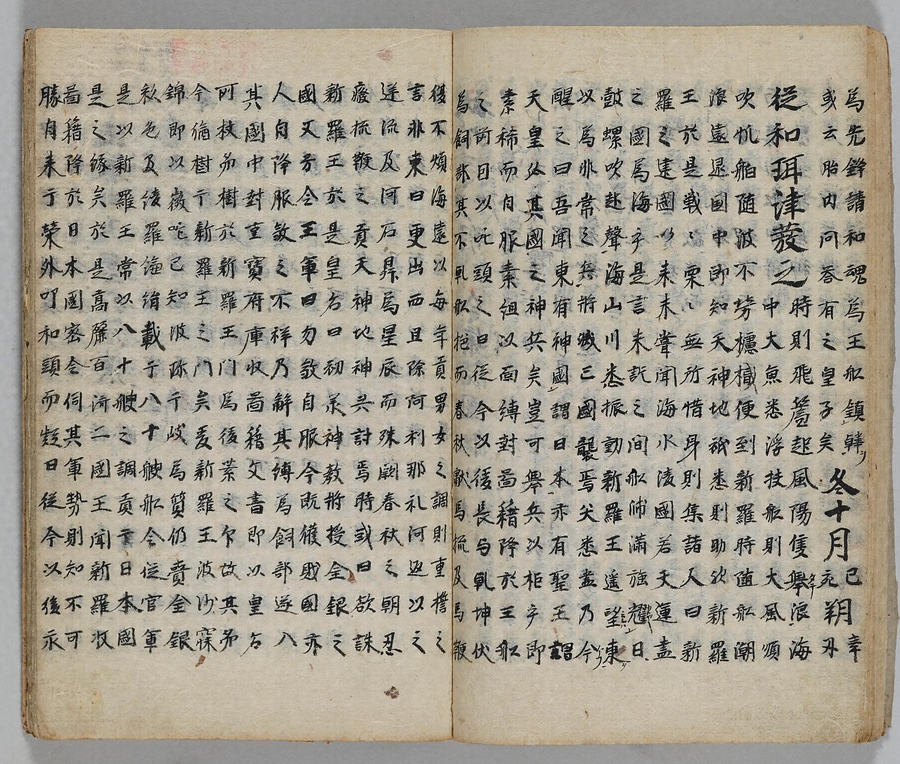 為先鋒請和魂為王船鎮
或云胎内問答有之皇子矣
冬十月己亥朔辛丑
従和珥津發之
時則飛簷起風陽隻舉浪海
中大魚悉浮扶船則大風順
吹帆舶随波不労櫨檝便到新羅時随船潮
浪遠逮國中即知天神地祇悉則助欤新羅
王於是戰々栗々無所惜身則集諸人曰新
羅之建國以来未嘗聞海水陵國若天運盡
之國為海乎是言未訖之間船師滿旌耀日
鼓螺吹起聲海山川悉振動新羅王遥望東
以為非常之兵將滅三國襲焉失悉盡乃今
醒之曰吾聞東有神國謂日本亦有聖王謂
天皇必其國之神兵矣豈可舉兵以柜乎即
素稀而自服素組以面縛對啚籍降於王船
之前曰以叱頭之曰従今以後長与乹坤伏
為飼部其不乹船柂而春秋獻馬梳及馬鞭
復不煩海遠以毎年貢男女之調則重擔之
言非東日更出而且除阿利那礼河返以之
逆流及河石昇為星辰而殊闕春秋之朝忍
癈梳鞭之貢天神地神共討焉時或曰欲誅
新羅王於是皇后曰初羕神教將授金銀之
國又号令王軍曰勿敎自服今既獲財國亦
人自降服敎之不祥乃解其縛為飼部遂入
其國中封重寶府庫收啚籍文書即以皇后
所杖弟樹於新羅王門為後葉之尓故其弟
今猶樹亍新羅王之門矣爰新羅王波沙寐
錦即以微叱己知波珎干岐為質仍賷金銀
秋色及綾羅縑絹載于八十艘船令從官軍
是以新羅王常以八十艘之調貢于日本國
是之縁矣於是高麗百済二國王聞新羅收
啚籍降於日本國密令伺其軍勢則知不可
勝自来于榮外叩和頭而欵曰従今以後永